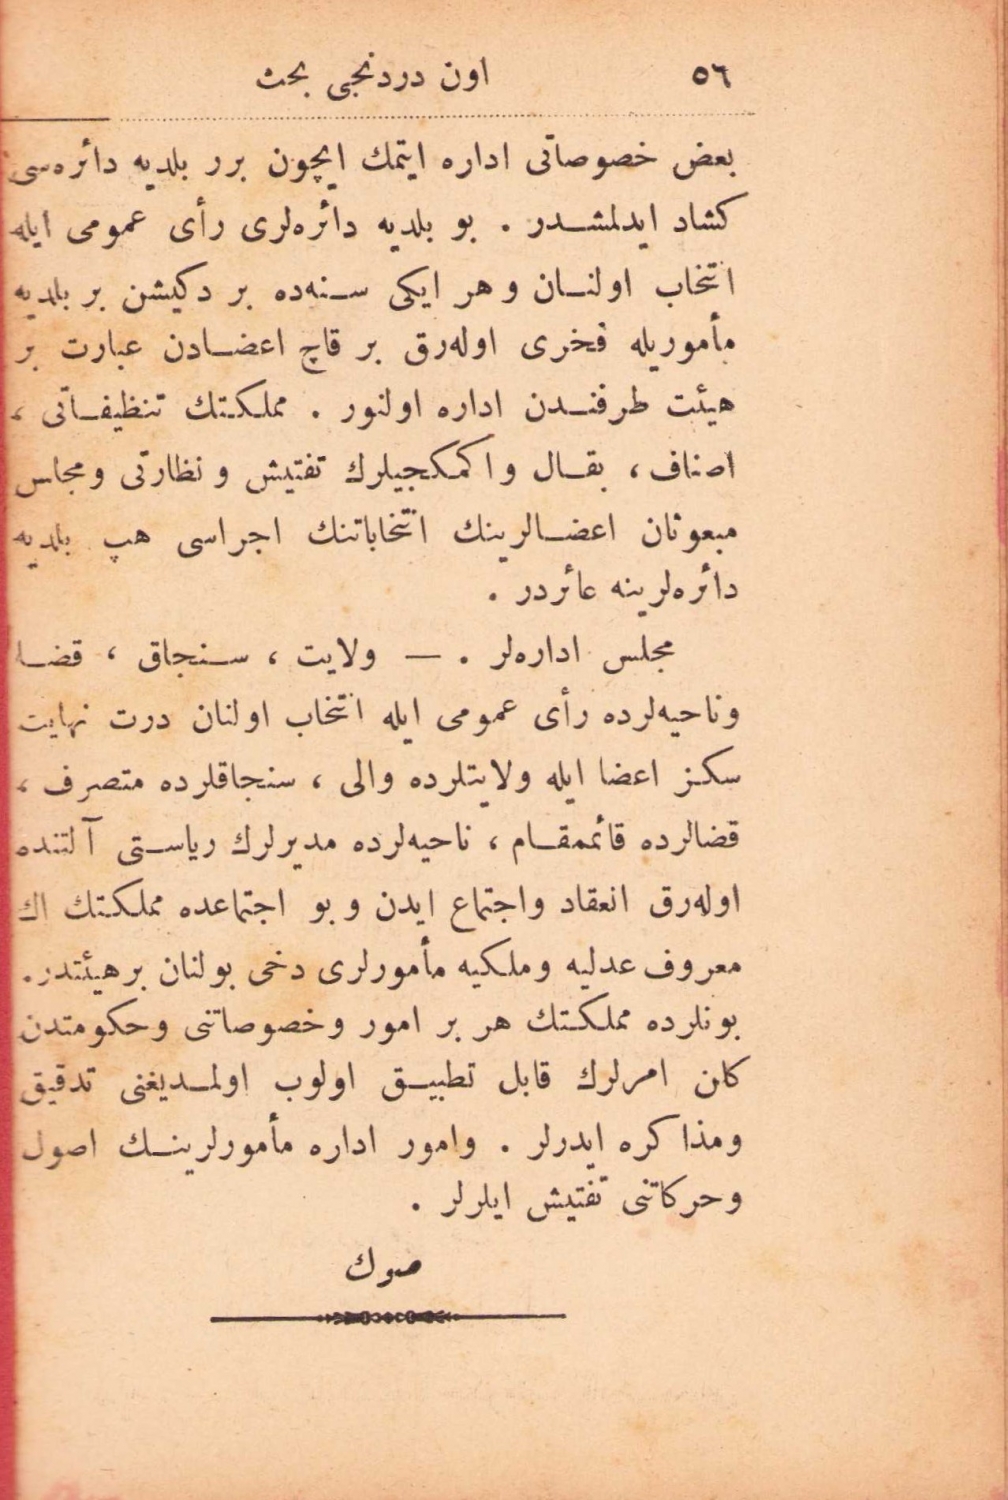 ٥٦ اون دردنجی بحث
بعض خصوصاتی اداره ایتمك ایچون برر بلدیه دائره‌سی
كشاد ایدلمشـدر . بو بلدیه دائره‌لری رأی عمومی ایله
انتخاب اولنـان و هر ایكی سـنه‌ده بر دكیشن بر بلدیه
مأموریله فخری اوله‌رق بر قاچ اعضـادن عبارت بر
هیئت طرفنـدن اداره اولنور . مملكتك تنظیفـاتی ،
اصناف ، بقـال و اكمكجیلرك تفتیش و نظارتی و مجلس
مبعوثان اعضـالرینك انتخاباتنك اجراسی هپ بلدیه
دائره‌لرینه عائردر .
مجلس اداره‌لر . — ولایت ، سـنجاق ، قضـا
وناحیه‌لرده رأی عمومی ایله انتخاب اولنان درت نهایت
سكز اعضا ایله ولایتلرده والی ، سنجاقلرده متصرف ،
قضالرده قائممقـام ، ناحیه‌لرده مدیرلرك ریاسـتی آلتنده
اوله‌رق انعقاد واجتماع ایدن و بو اجتماعده مملكتك اك
معروف عدلیه وملكیه مأمورلری دخی بولنان برهیئتدر.
بونلرده مملكتك هر بر امور وخصوصاتنی وحكومتدن
كان امرلرك قابل تطبیـق اولوب اولمـدیغنی تدقیق
ومذاكره ایدرلر . وامور اداره مأمورلرینـك اصول
وحركاتنی تفتیش ایلرلر .
صوك